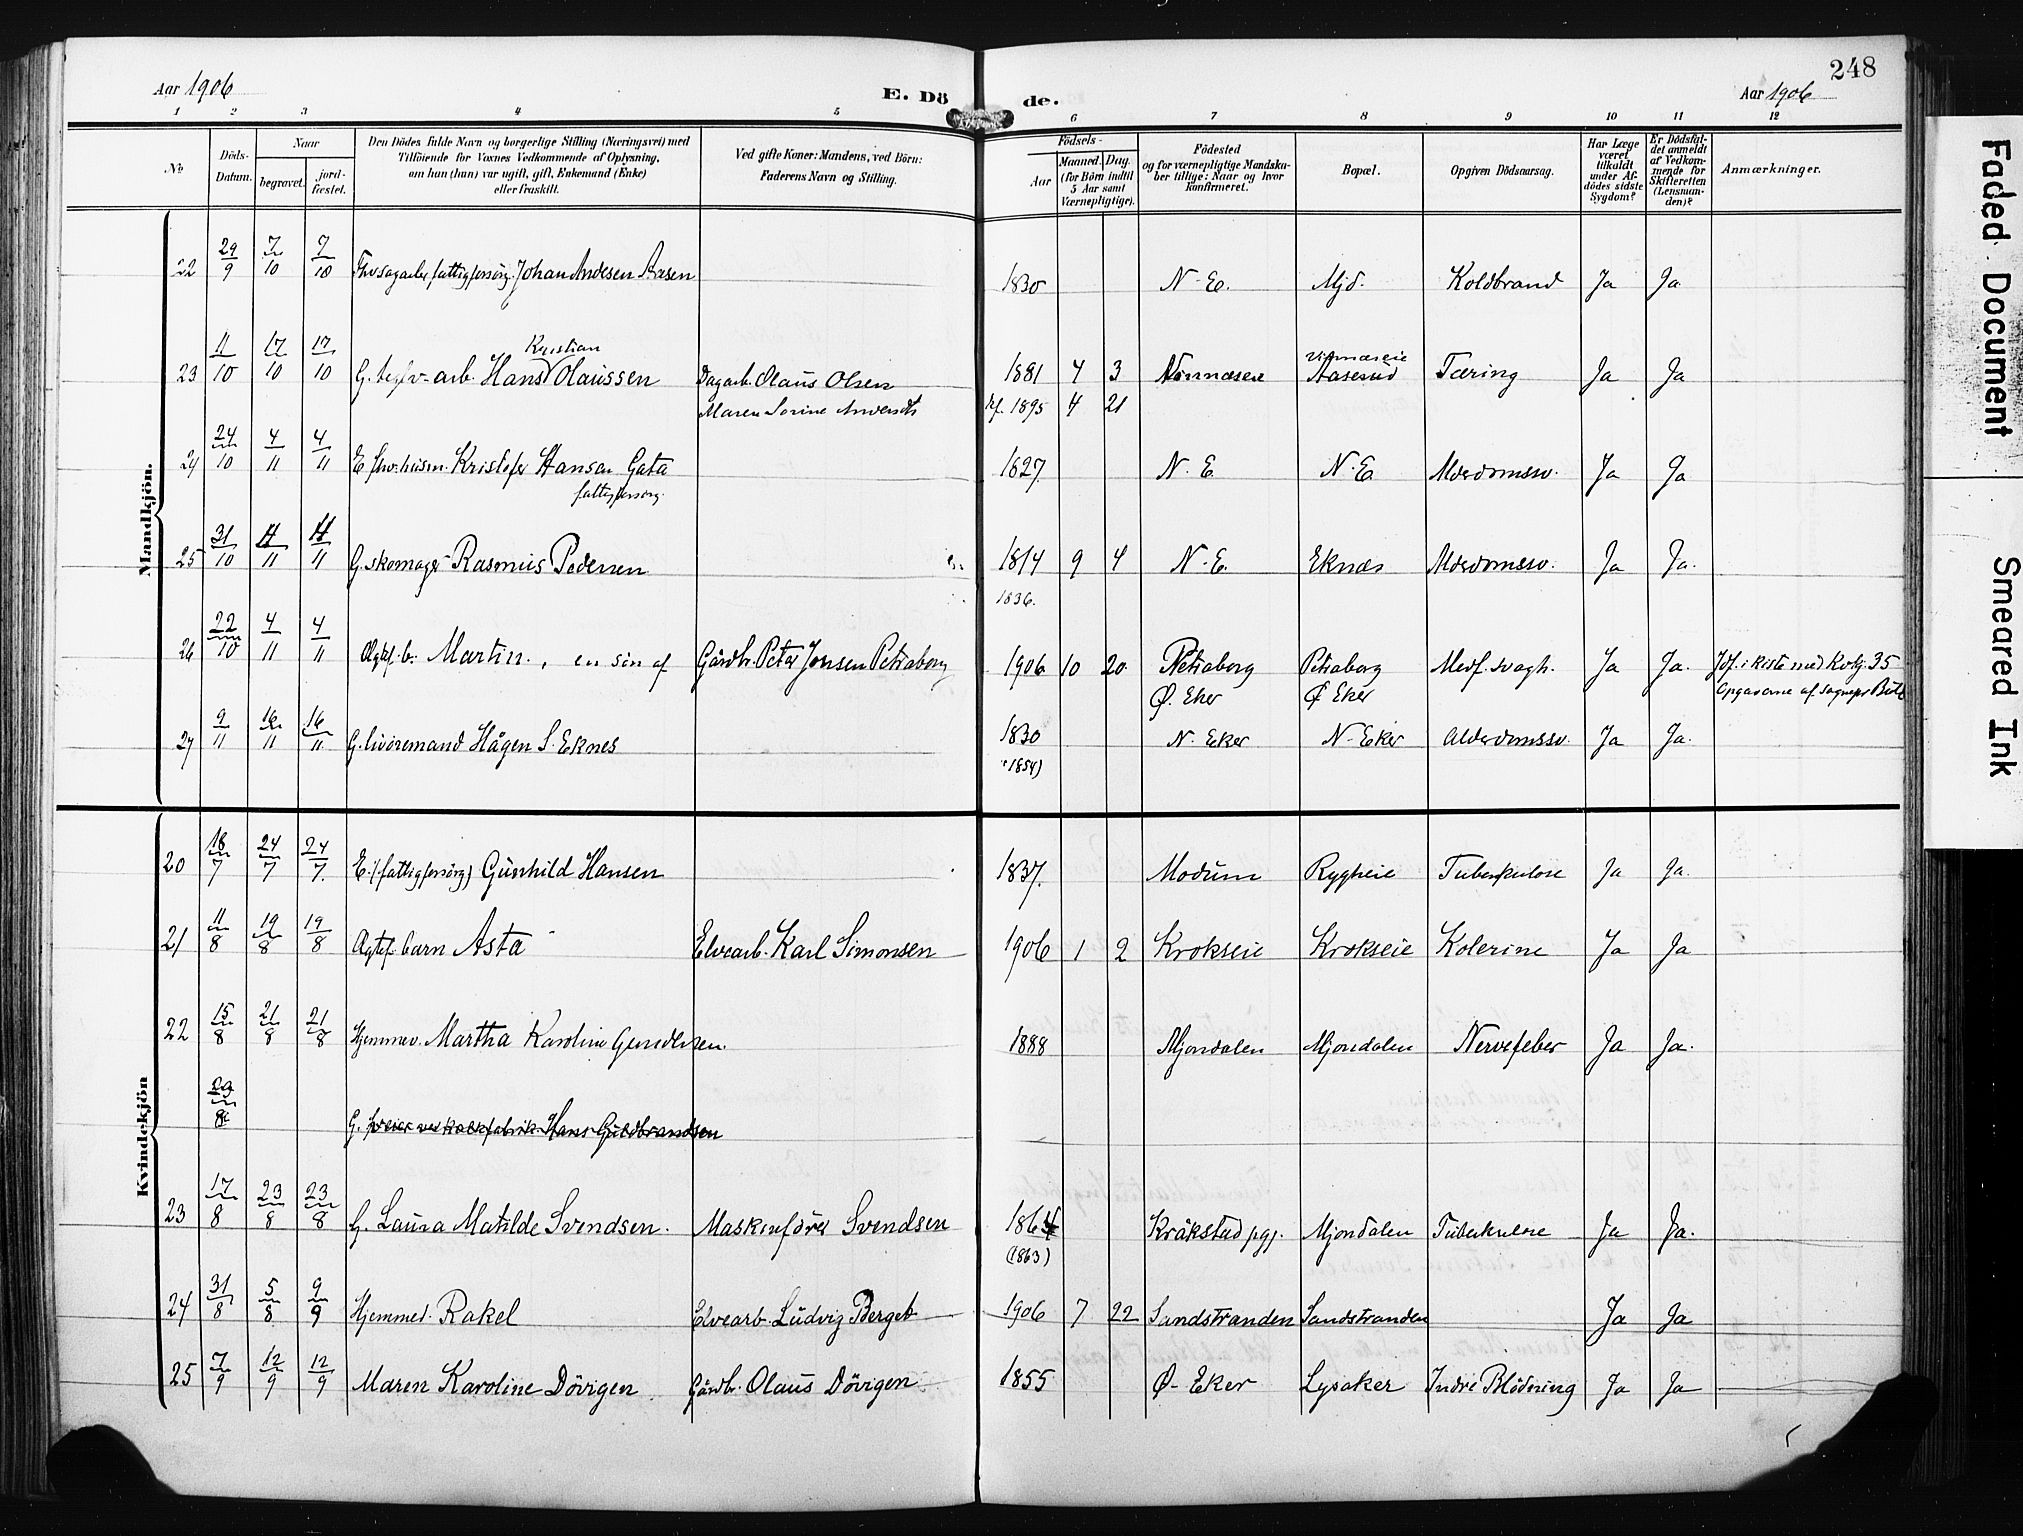 248
Aar 1906
E. Dö
de.
Aar 1906
1 2 3 4 5 6 7 8 9 10 11 12
No
Döds-Datum.
Naar
begravet.
jord-fæstet.
Den Dödes fulde Navn og borgerlige Stilling (Næringsvei) med
Tilföiende for Voxnes Vedkommende af Oplysning,
om han (hun) var ugift, gift, Enkemand (Enke)
eller fraskilt.
Ved gifte Koner: Mandens, ved Börn:
Faderens Navn og Stilling.
Födsels-
Aar
Maaned.
Dag.
(for Börn indtil
5 Aar samt
Værnepligtige).
Födested
og for værnepligtige Mandska-
ber tillige: Naar og hvor
konfirmeret.
Bopæl.
Opgiven Dödsaarsag.
Har Læge
været
tilkaldt
under Af-
dödes sidste
Sygdom?
Er Dödsfal-
det anmeldt
af Vedkom-
mende for
Skifteretten
(Lensman-
den)?
Anmærkninger.
Mandkjön.
22 29/9 7/10 7/10 Johan Andersen Aasen 1830 N. E. Mjd. Koldbrand Ja Ja
Kristian
23 11/10 17/10 17/10 Hans Olaussen Dagarb. Olaus Olsen 1881 4 3 Aaserud Tæring Ja Ja
Maren Sorine 1895 4 21
24 24/10 4/11 4/11 E. Kristofer Hansen Gata 1827. N. E. N. E. Alderdomssv. Ja Ja
fattigforsörg.
25 31/10 11 11 G. skomager Rasmus Pedersen 1814 9 4 N. E. Eknæs Alderdomssv. Ja Ja.
1836.
26 22/10 4/11 4/11 Ægtef. b. Martin., en sön af Gårdbr. Peter Jensen Petraborg 1906 10 20 Petraborg Petraborg Medf. svagh. Ja Ja. Jdf. i kiste med Kvkj. 35
Ø. Eker Ø Eker Opgaverne af sognepr
27 9/11 16/11 16/11 G. livöremand Hågen S. Eknes 1830 N. Eker N. Eker Alderdomssv. Ja Ja.
(1854)
Kvindekjön
20 18/7 24/7 24/7 E. (fattigforsörg) Gunhild Hansen 1837. Modum Rygheie Tuberkulose Ja Ja.
21 11/8 19/8 19/8 Ægtef. barn Asta Elvearb. Karl Simonsen 1906 1 2 Krokseie Krokseie Kolerine Ja Ja
22 15/8 21/8 21/8 Hjemmev. Martha Karoline Gundersen. 1888 Mjondalen Mjondalen Nervefeber Ja Ja.
29/8 G. Hans Guldbrandsen
23 17/8 23/8 23/8 G. Laura Matilde Svendsen. Maskinförer Svendsen 1864 Kråkstad pgj. Mjondalen Tuberkulose Ja Ja.
(1863)
24 31/8 5/8 9/9 Hjemmed. Rakel Elvearb. Ludvig Berget 1906 7 22 Sandstranden Sandstranden Ja Ja
25 7/9 12/9 12/9 Maren Karoline Dövigen Gårdbr. Olaus Dövigen 1855 Ø. Eker Lysaker Indre Blödning Ja Ja
Faded Document
Smeared Ink